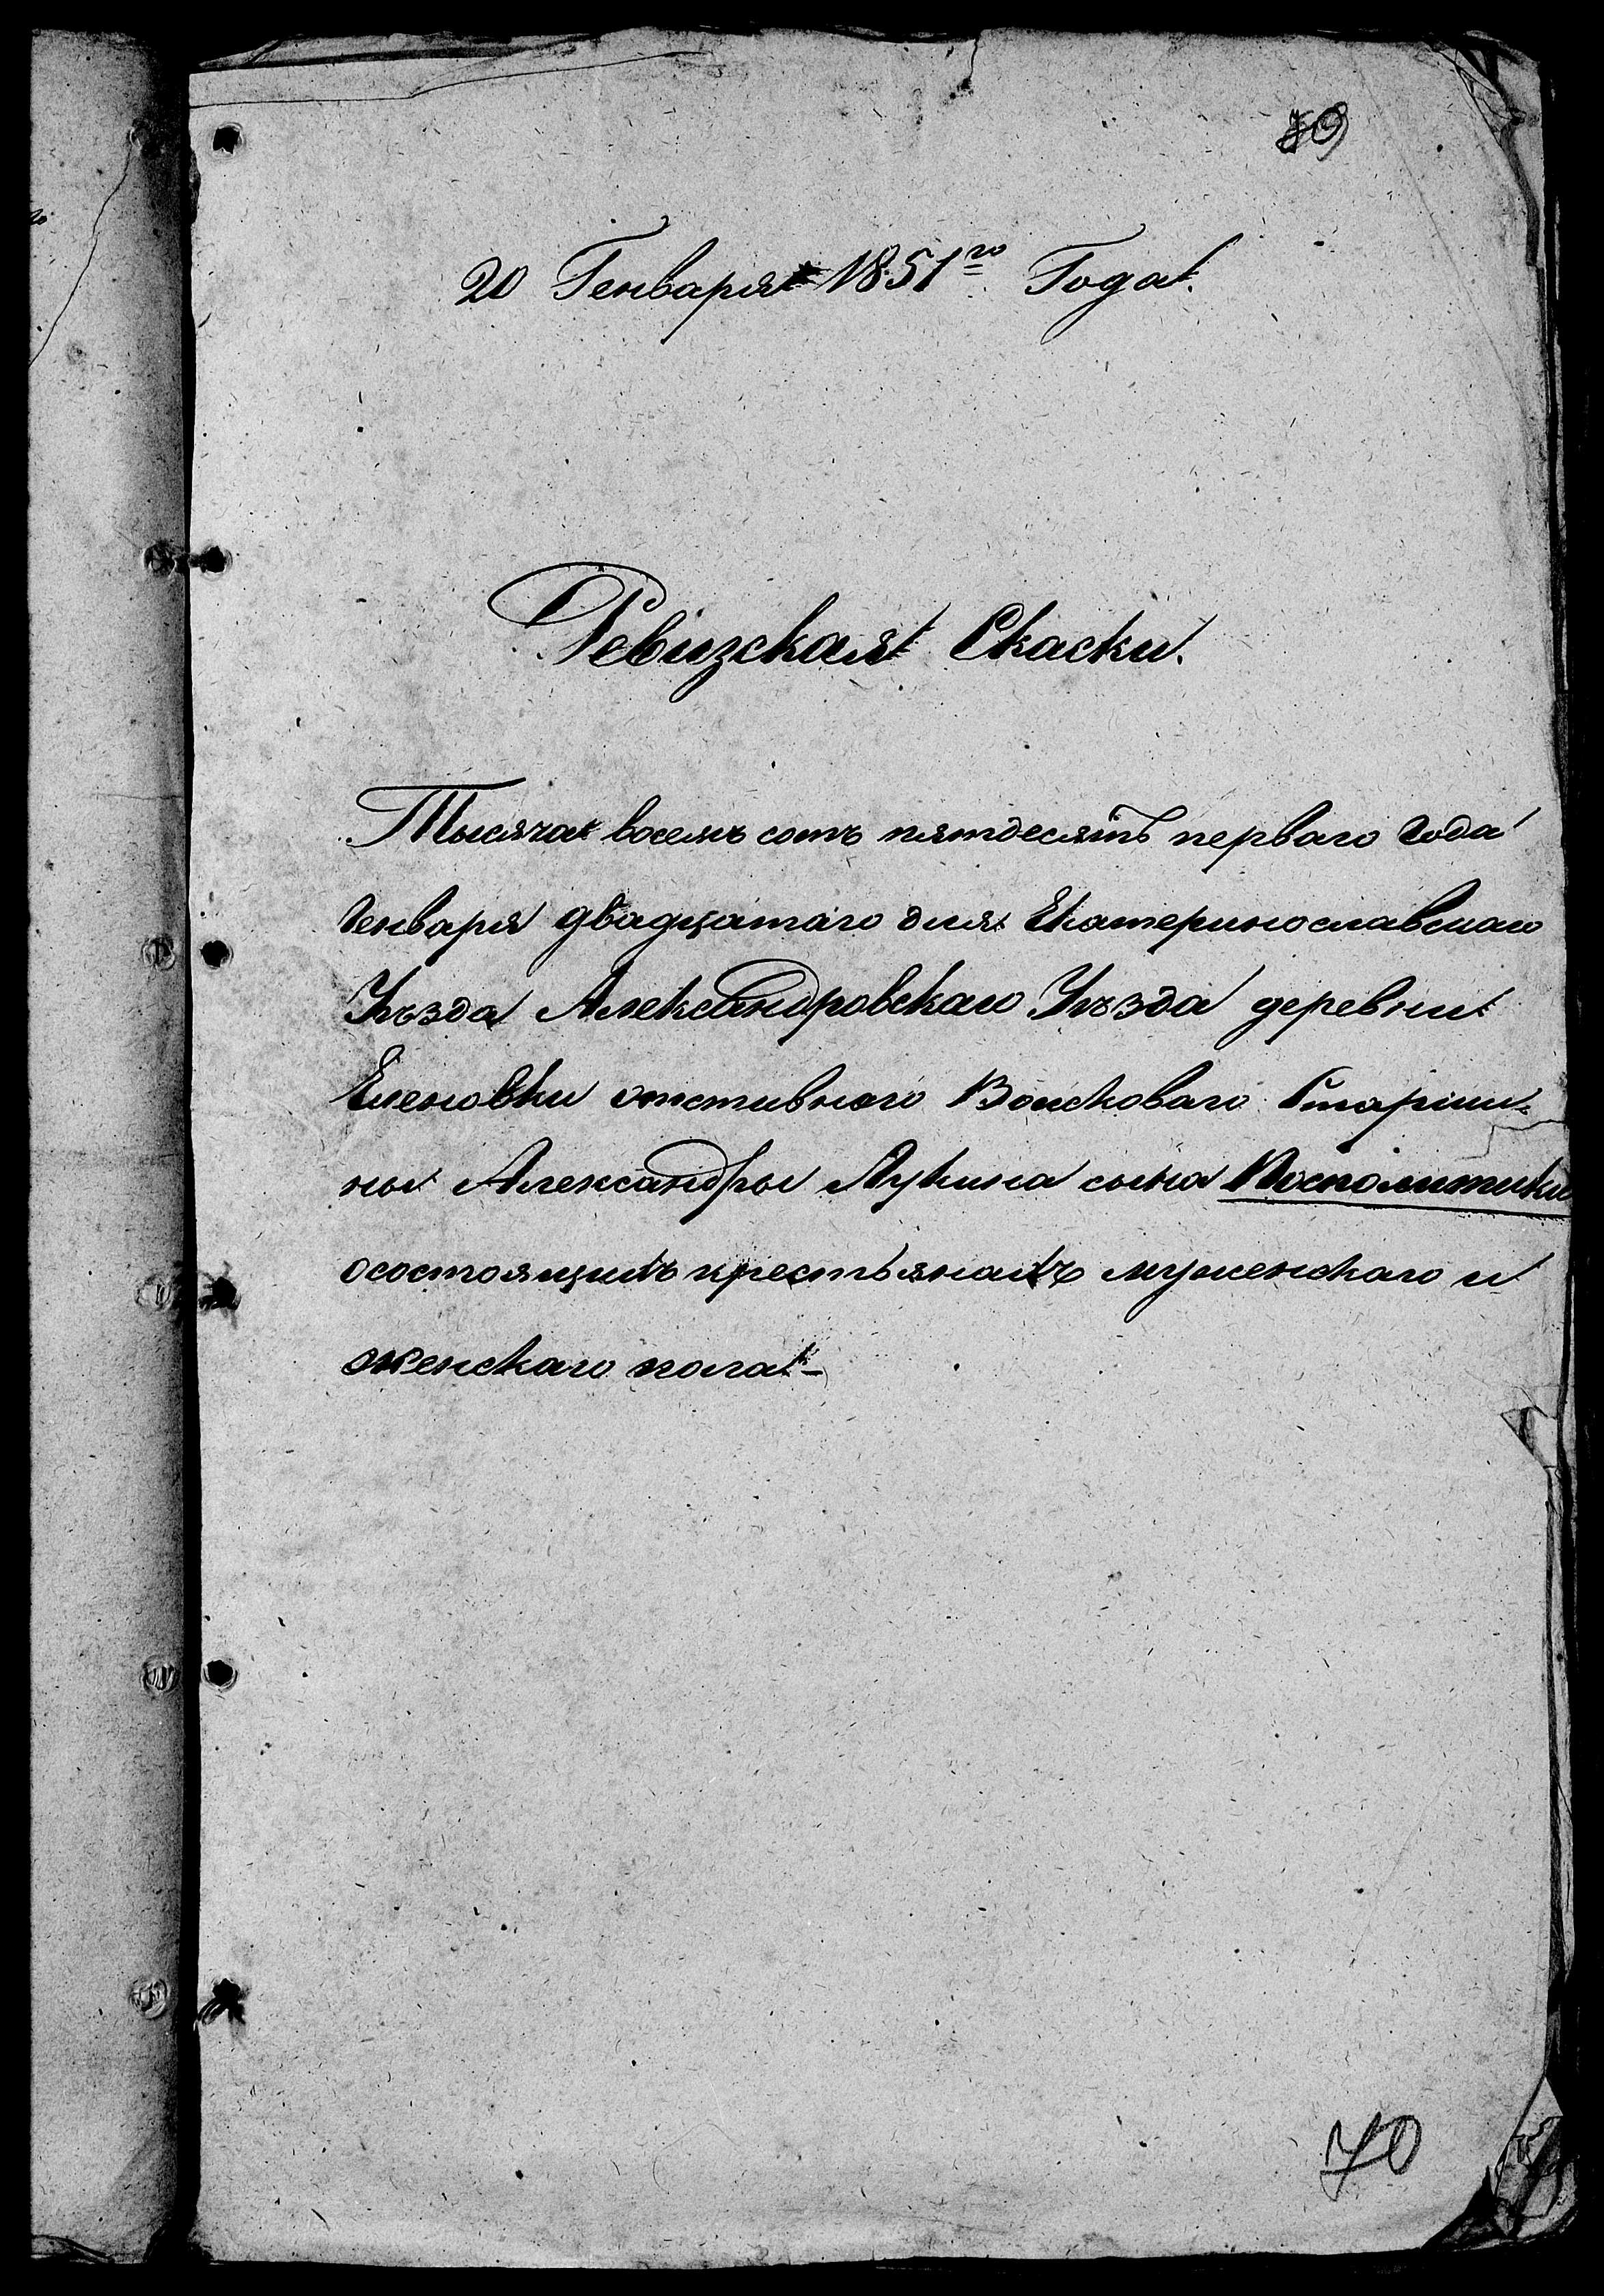 70
20 Генваря 1851го Года.
Ревизская Скаски.
Тысяча восемь сотъ пятдесятъ перваго года
Генваря двадцатаго дня Екатеринославскаго
Уѣзда Александровскаго Уѣзда деревни
Еленовки отставного Воисковаго Старши-
ны Александры Лукина сына Посполитики
осостоящихъ крестьянахъ мужескаго и
женскаго пола
70